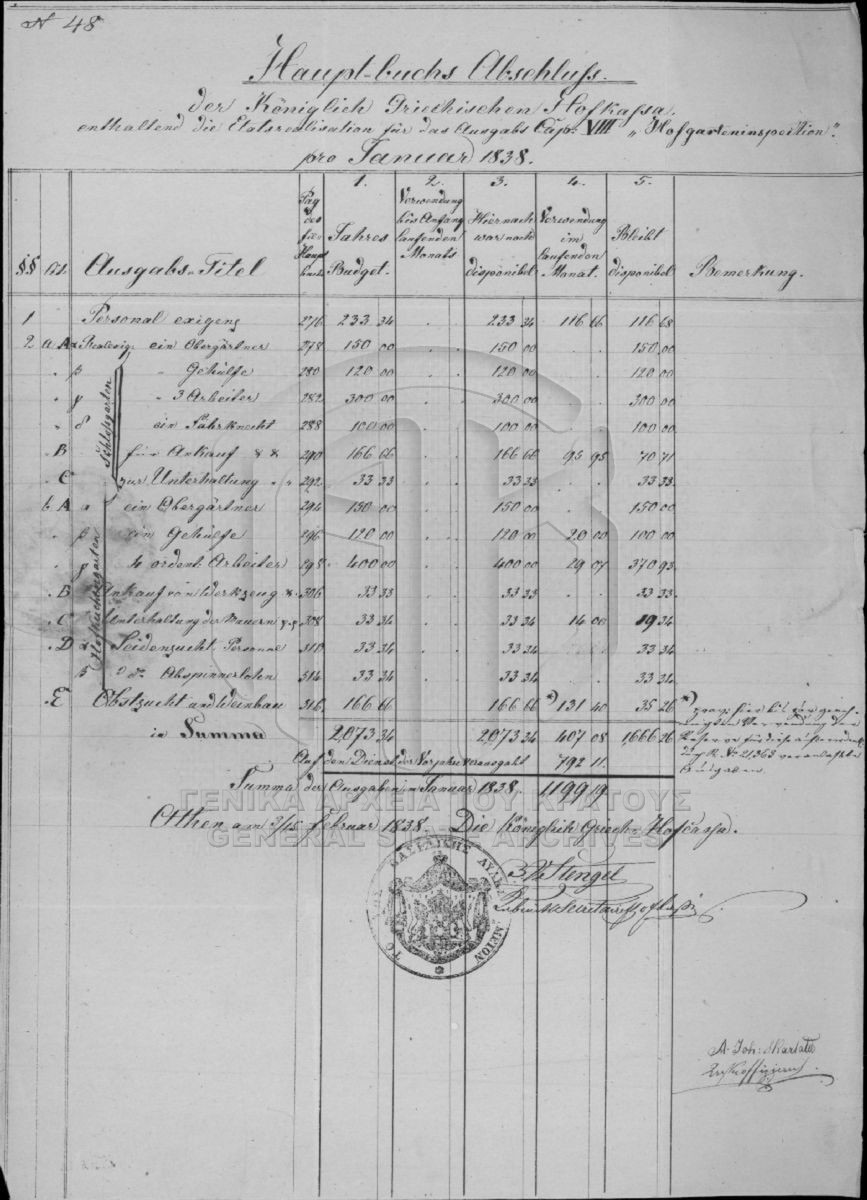 N 48
Haupt-buchs Abschluss.
der Königlich Griechischen Hofkassa.
enthaltend die Etatsrealisation für das Ausgabs Cap: VIII „Hofgarteninspection".
pro Januar 1838.
§§ Lit. Ausgabs-Titel Pag des Haupt buchs 1. Jahres Budget. 2. Verwendung bis Anfang laufenden Monats 3. Hiernach war noch disponibel 4. Verwendung im laufenden Monat. 5. Bleibt disponibel Bemerkung.
1 Personal exigenz 276 233 34 . . 233 34 116 66 116 68
2 a A α Realexig. ein Obergärtner 278 150 00 . . 150 00 . . 150 00
" β " Gehülfe 280 120 00 . . 120 00 . . 120 00
" γ " 3 Arbeiter 282 300 00 . . 300 00 . . 300 00
" δ ein Fuhrknecht 288 100 00 . . 100 00 . . 100 00
Schlossgarten
. B für Ankauf & & 290 166 66 . . 166 66 95 95 70 71
. C zur Unterhaltung " " 292 33 33 . . 33 33 . . 33 33
b A α ein Obergärtner 294 150 00 . . 150 00 . . 150 00
. β ein Gehülfe 296 120 00 . . 120 00 20 00 100 00
. γ 4 ordent. Arbeiter 298 400 00 . . 400 00 29 07 370 93
Hofküchengarten
. B Ankauf von Werkzeug &. 306 33 33 . . 33 33 . . 33 33
. C Unterhaltung der Mauern 308 33 34 . . 33 34 14 00 19 34
. D α Seidenzucht Personal 310 33 34 . . 33 34 . . 33 34
β Abspinnerlohn 314 33 34 . . 33 34 . . 33 34
. E Obstzucht und Weinbau 316 166 66 166 66 *) 131 40 35 26
in Summa 2,073 34 2,073 34 407 08 1,666 26
*)
Auf den Dienst des Vorjahrs verausgabt 792 11.
Summa der Ausgaben im Januar 1838. 1199 19.
Athen am 3/15 Februar 1838. Die Königlich Griech. Hofcassa.
Stengel
A. Joh: Skarlato
ΤΑΜΕΙΟΝ ΤΗΣ ΒΑΣΙΛΙΚΗΣ ΑΥΛΗΣ
ΓΕΝΙΚΑ ΑΡΧΕΙΑ ΤΟΥ ΚΡΑΤΟΥΣ
GENERAL STATE ARCHIVES